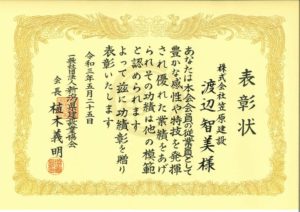 表彰状
株式会社笠原建設
渡辺智美様
あなたは本会会員の従業員として
豊かな感性や特技を発揮
され優れた業績をあげ
られその功績は他の模範
と認められます
よって茲に功績彰を贈り
表彰いたします
令和三年五月二十五日
一般社団法人新潟県建設業協会
会長植木義明